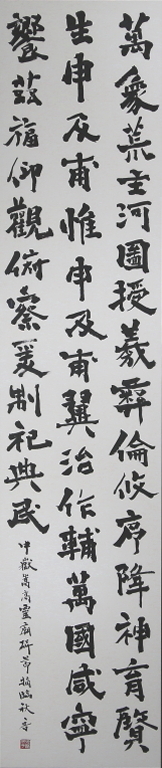 萬象荒主河圖授羲彝倫攸序降神育賢
生申及甫惟申及甫翼治作輔萬國咸寧
饗茲福仰觀俯察爰制祀典民
中嶽嵩高靈廟碑節臨秋